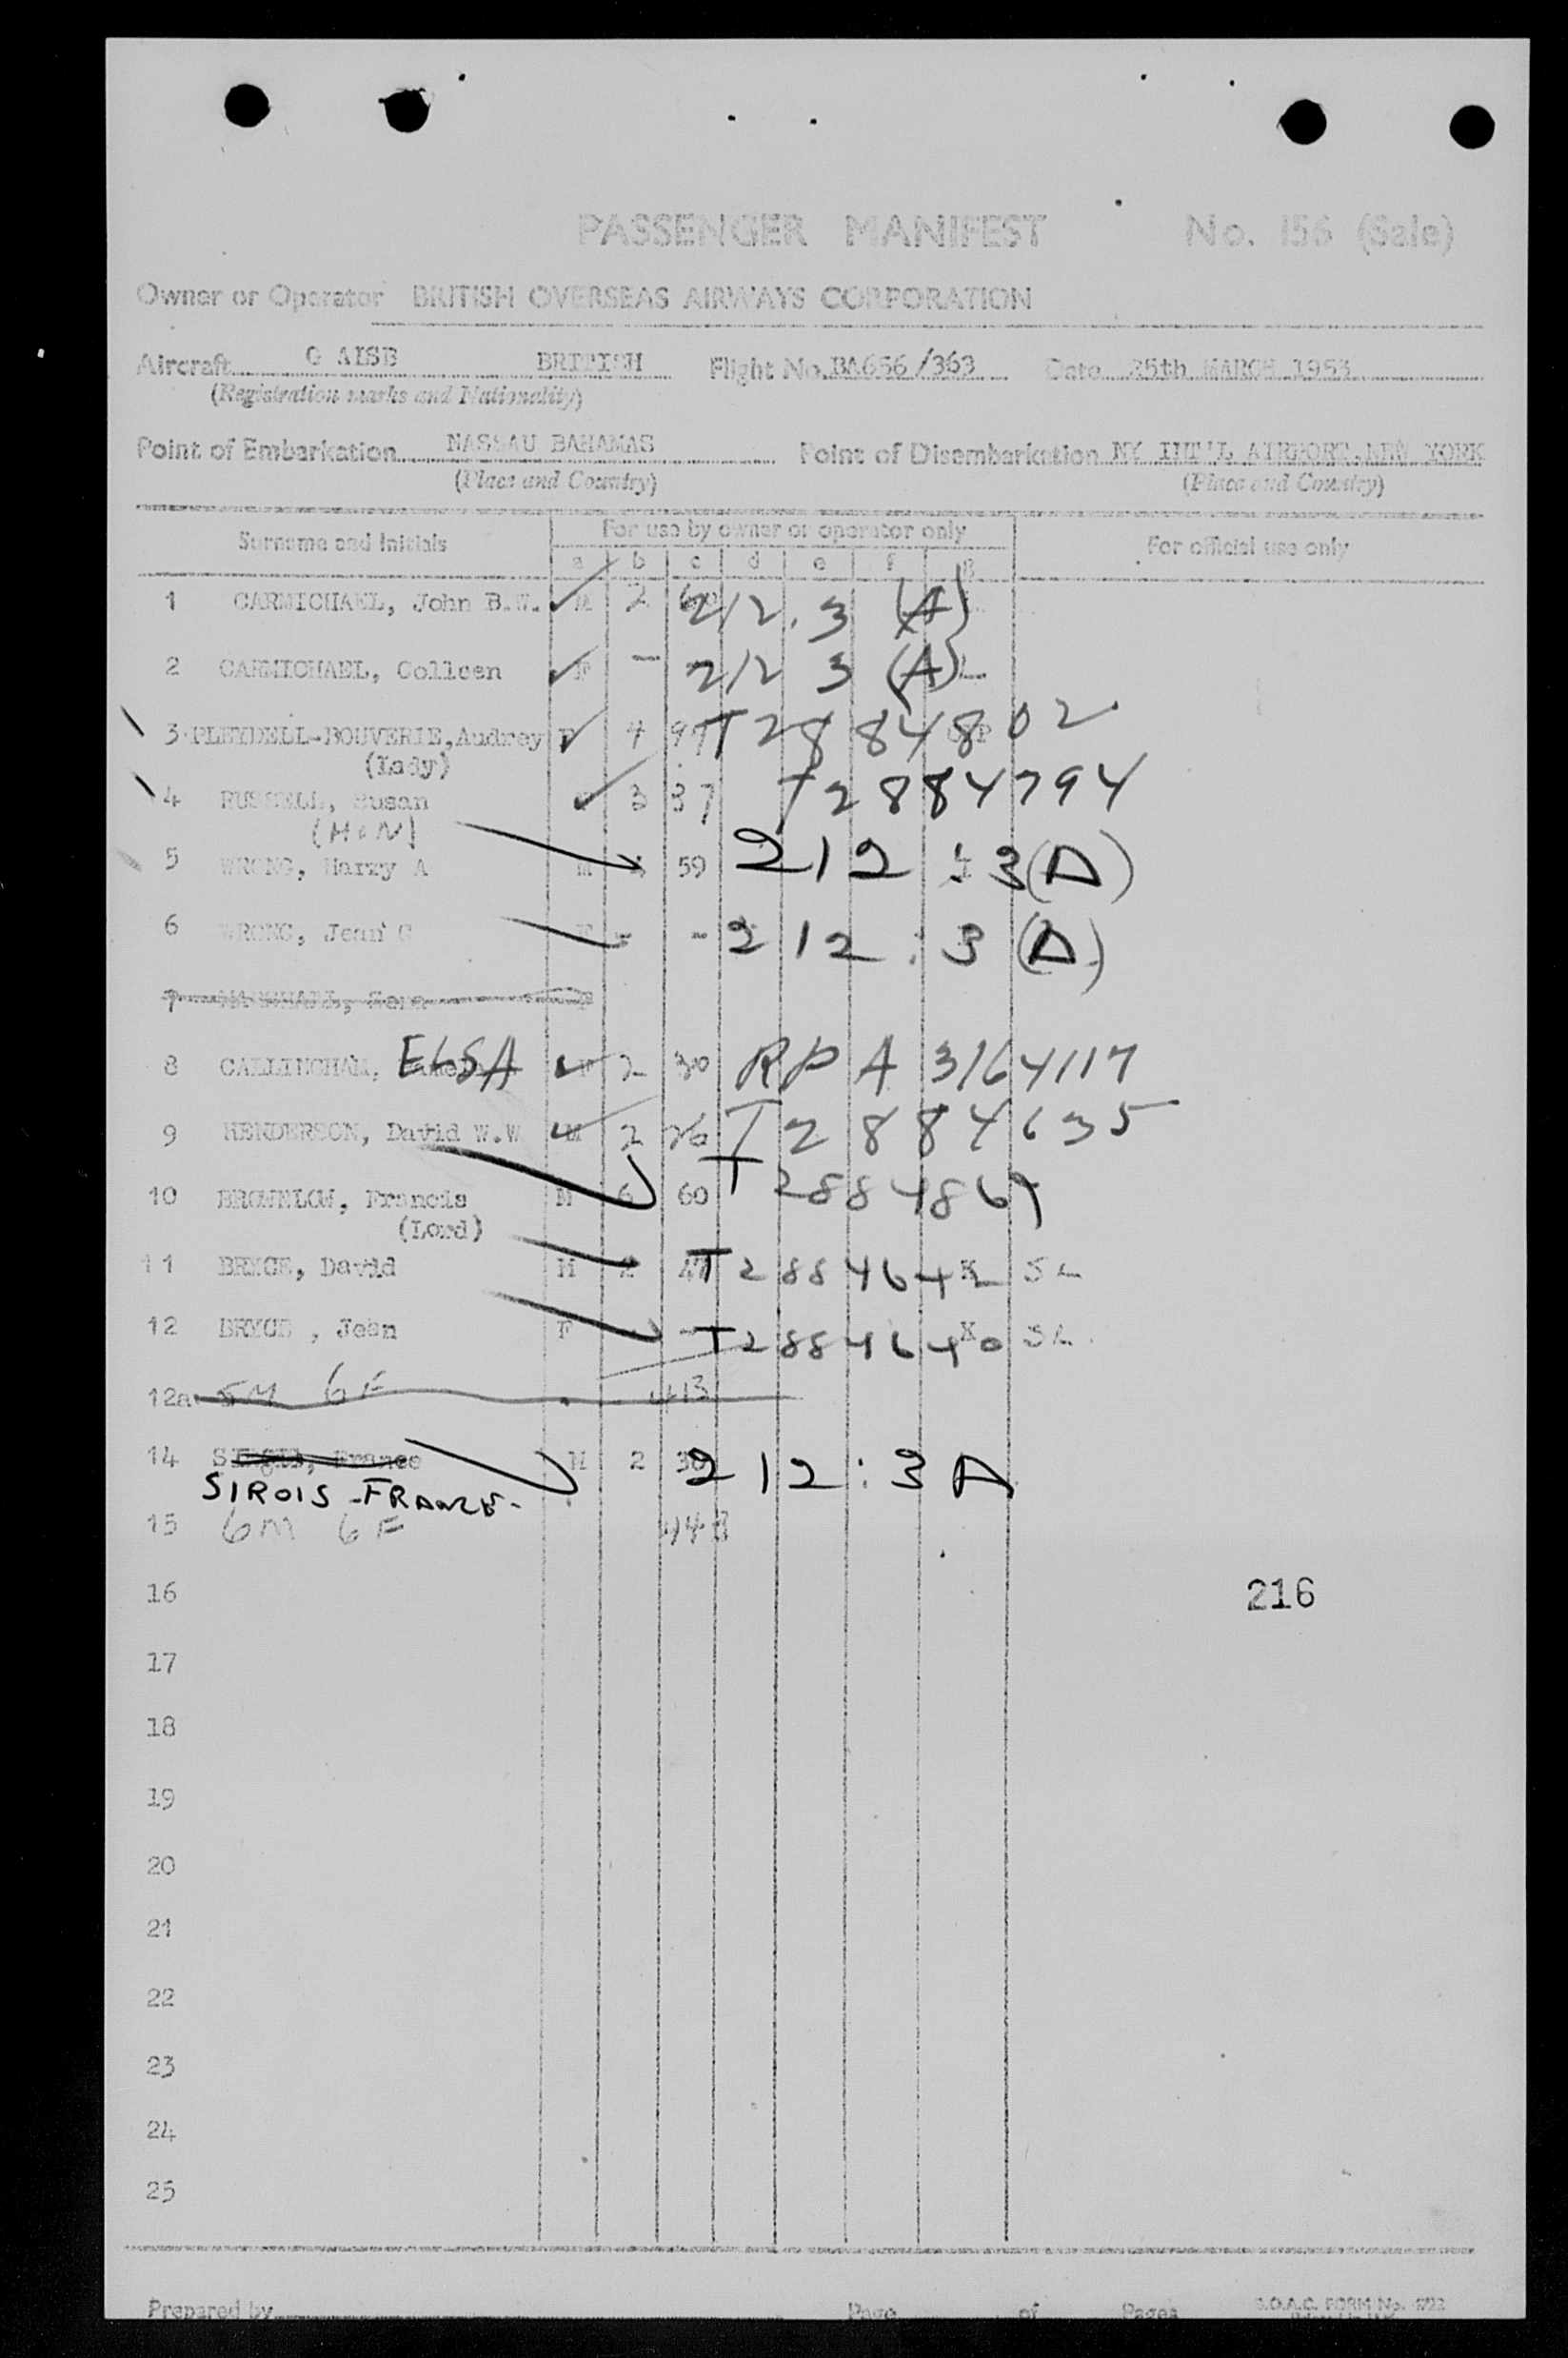 PASSENGER MANIFEST No. 156 (Sale)
Owner or Operator BRITISH OVERSEAS AIRWAYS CORPORATION
Aircraft G AISB BRITISH Flight No. BA656/363 Date 25th MARCH 1953
(Registration marks and Nationality)
Point of Embarkation NASSAU BAHAMAS Point of Disembarkation NY INT'L AIRPORT.NEW YORK
(Place and Country) (Place and Country)
Surname and Initials For use by owner or operator only For official use only
a b c d e f g
1 CARMICHAEL, John B.W. M 2 212.3 (A)
2 CARMICHAEL, Colleen F - 212 3 (A)
3 PLEYDELL-BOUVERIE, Audrey F 4 T2884802
(Lady)
4 RUSSELL, Susan 3 37 T2884794
(HON)
5 WRONG, Harry A M 59 212 : 3 (A)
6 WRONG, Jean C F - - 212 : 3 (A)
7 F
8 CALLINGHAM, ELSA F 2 30 RPA 3164117
9 HENDERSON, David W.W M 2 26 T2884635
10 BROWNLOW, Francis M 6 60 T2884867
(Lord)
11 BRYCE, David M 2 T2884642 X SL
12 BRYCE , Jean F T2884640 X SL
12a 5M 6F 413
14 France M 2 212:3 A
SIROIS -FRANCE-
15 6M 6F 448
16
216
17
18
19
20
21
22
23
24
25
Prepared by Page of Pages B.O.A.C. FORM No.